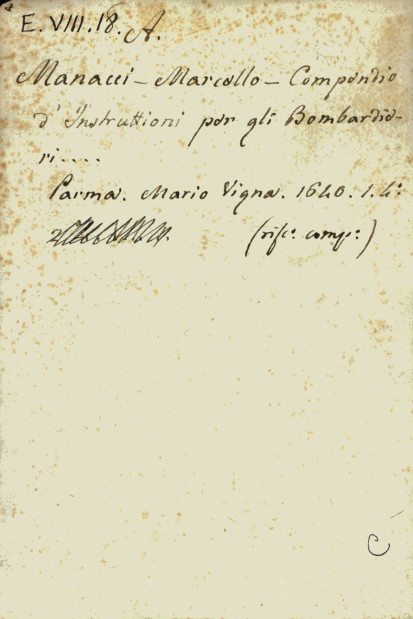 E. VIII. 18. A.
Manacci - Marcello - Compendio
d'Instruttioni per gli Bombardie-
ri....
Parma. Mario Vigna. 1640. 1. 4º
(rifº. compº.)
C